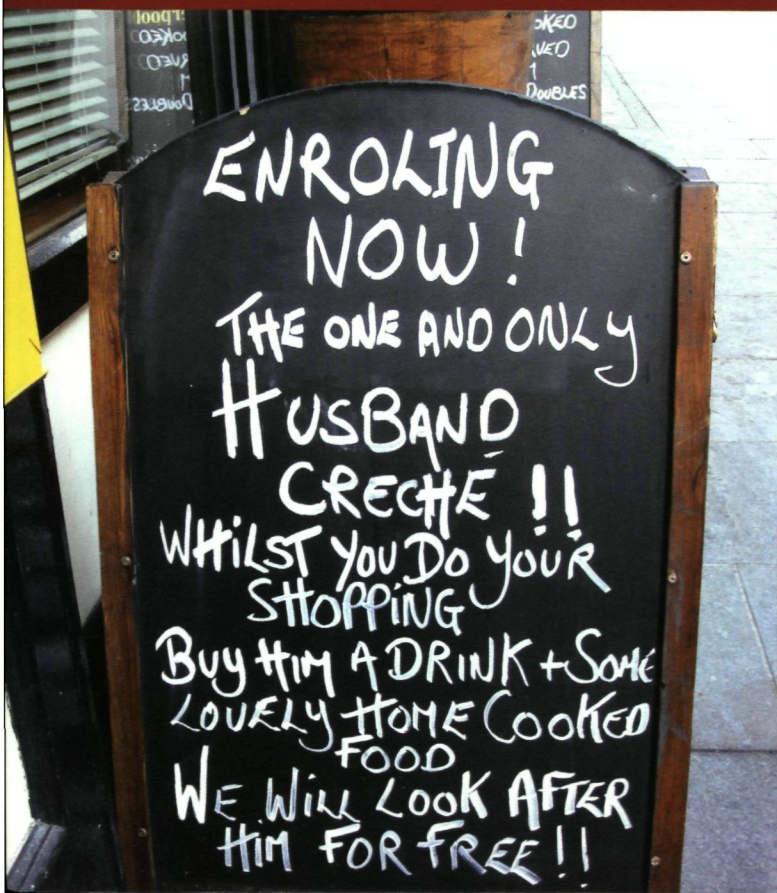 OKED
VED
DOUBLES
ENROLING
NOW!
THE ONE AND ONLY
HUSBAND
CRECHÉ !!
WHILST YOU DO YOUR
SHOPPING
BUY HIM A DRINK + SOME
LOVELY HOME COOKED
FOOD
WE WILL LOOK AFTER
HIM FOR FREE!!